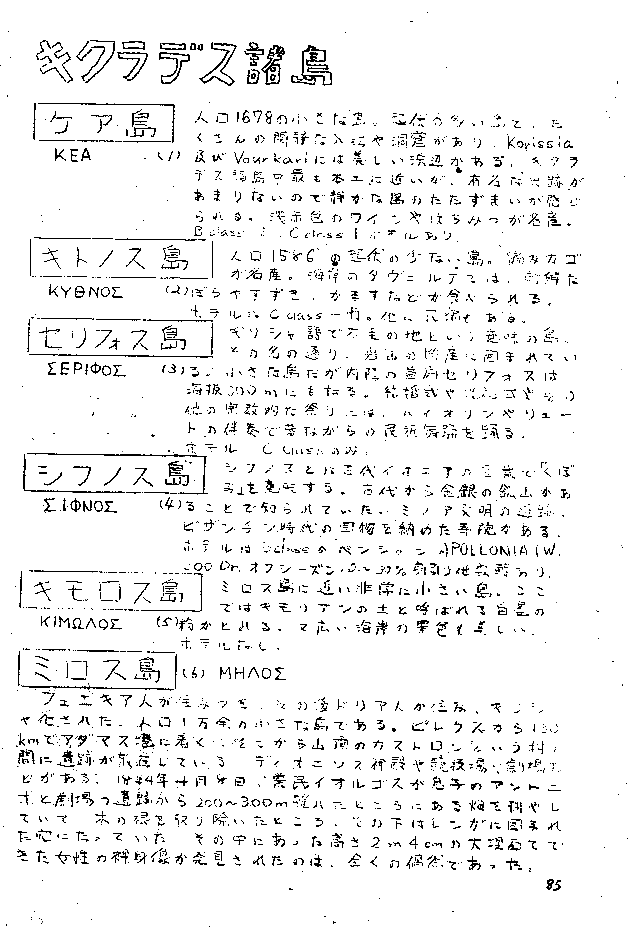 キクラデス諸島
ケア島
KEA (1)
人口1678の小さな島。起伏の多い島で、た
くさんの閑静な入江や洞窟があり、Korissia
及びVourkariには美しい浜辺がある。キクラ
デス諸島中最も本土に近いが、有名な遺跡が
あまりないので静かな島のたたずまいが感じ
られる。淡赤色のワインやはちみつが名産。
B class 1、C class 1 ホテルあり
キトノス島
ΚΥΘΝΟΣ (2)
人口1586の起伏の少ない島。編みカゴ
が名産。海岸のタヴェルナでは、新鮮な
ぼらやすずき、かますなどが食べられる。
ホテルは C class 一軒。他に民宿もある。
セリフォス島
ΣΕΡΙΦΟΣ (3)
ギリシャ語で不毛の地という意味の島。
その名の通り、岩山の に囲まれてい
る。小さな島だが内陸の首府セリフォスは
海抜300mにも在る。結婚式や 式やその
他の宗教的な祭りには、バイオリンやリュー
トの伴奏で昔ながらの民族舞踊を踊る。
ホテル C classのみ。
シフノス島
ΣΙΦΝΟΣ (4)
シフノスとは古代イオニアの言葉で「くぼ
み」を意味する。古代から金銀の鉱山があ
ることで知られていた。ミノア文明の遺跡、
ビザンチン時代の宝物を納めた寺院がある。
ホテルは classのペンション APOLLONIA (W.
200 Dr. オフシーズン 割引) 他数軒あり。
キモロス島
ΚΙΜΩΛΟΣ (5)
ミロス島に近い非常に小さい島。ここ
ではキモリアンの土と呼ばれる白墨の
粉がとれる。 広い海岸の景色も美しい。
ホテルなし。
ミロス島
(6) ΜΗΛΟΣ
フェニキア人が住みつき、その後ドリア人が住み、キリシ
ャ化された。人口1万余の小さな島である。ピレウスから
kmでアダマス港に着く。そこから山頂のカストロンという村の
間に遺跡が散在している。ディオニソス神殿や競技場、劇場な
どがある。1844年4月8日、農民イオルゴスが息子のアントニ
オと劇場の遺跡から200〜300m離れたところにある畑を耕やし
ていて、木の根を取り除いたところ、その下はレンガに囲まれ
た穴になっていた。その中にあった高さ2m4cmの大理石でで
きた女性の裸身像が発見されたのは、全くの偶然であった。
85